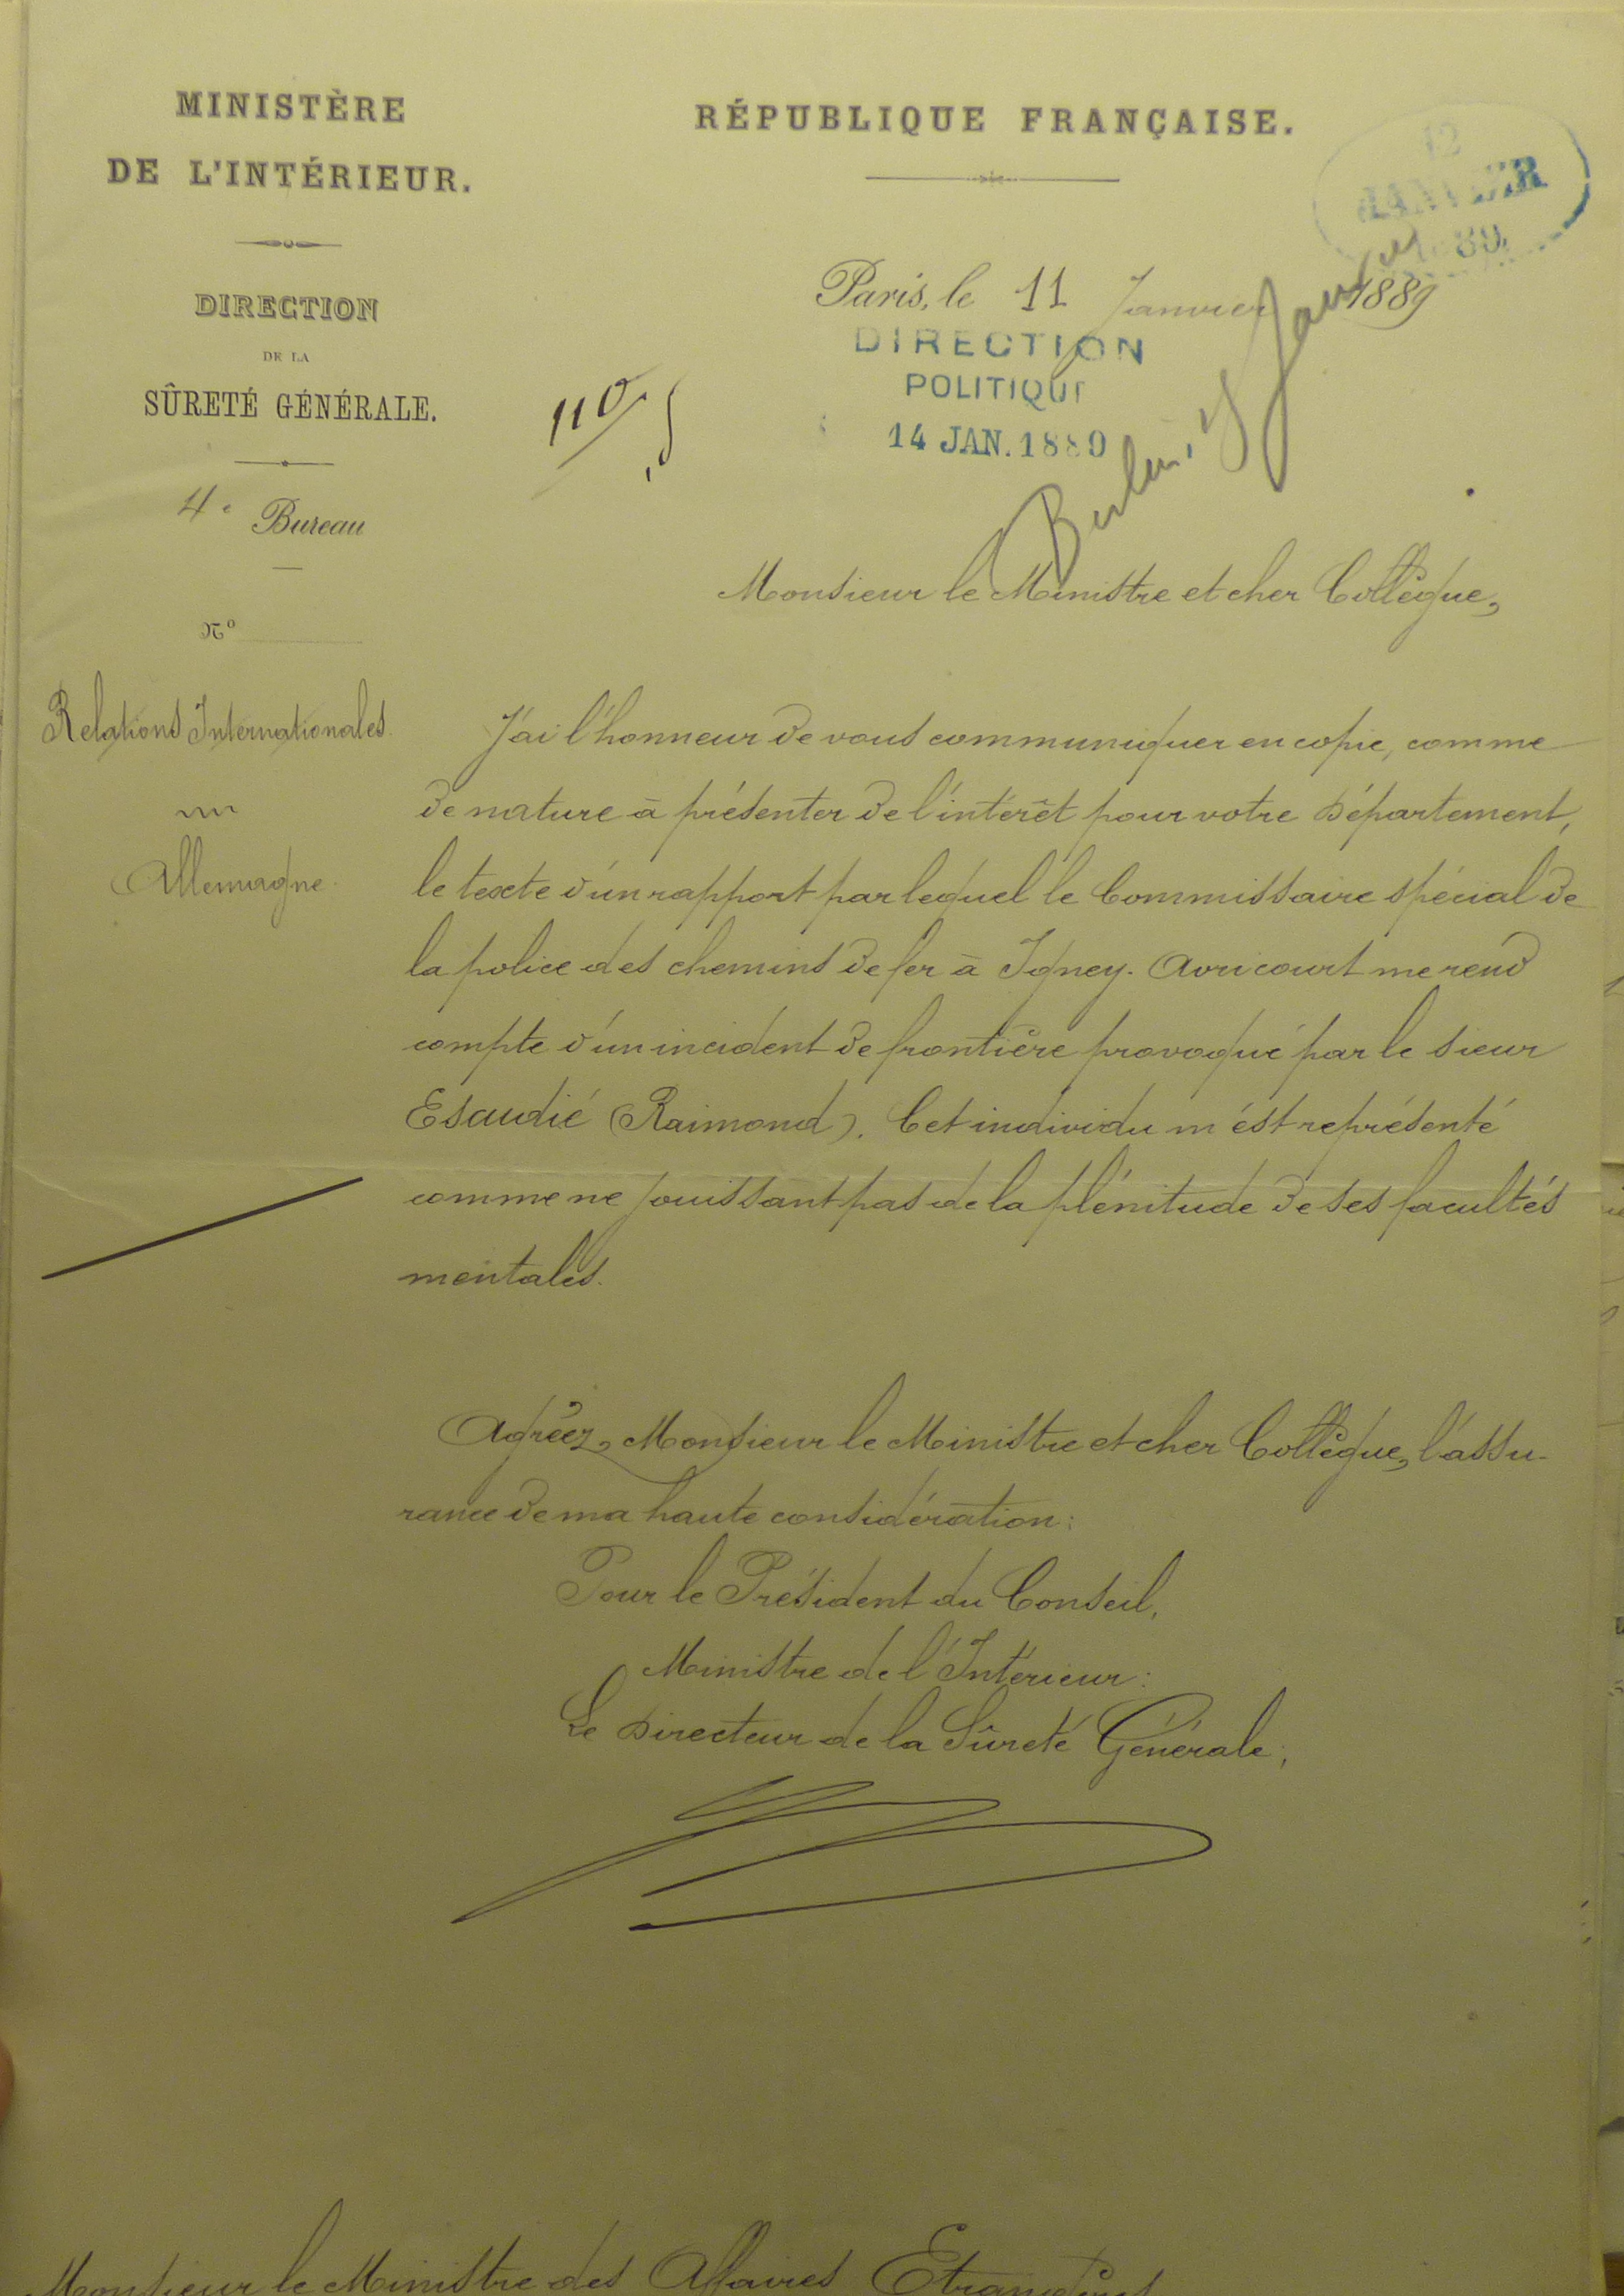 MINISTÈRE
DE L'INTÉRIEUR.
DIRECTION
DE LA
SÛRETÉ GÉNÉRALE.
4e Bureau
No
Relations Internationales.
Allemagne.
RÉPUBLIQUE FRANÇAISE.
12
JANVIER
89
Paris, le 11 Janvier 1889
DIRECTION
POLITIQUE
14 JAN. 1889
110
Berlin, Janvier
Monsieur le Ministre et cher Collègue,
J'ai l'honneur de vous communiquer en copie, comme
de nature à présenter de l'intérêt pour votre Département,
le texte d'un rapport par lequel le Commissaire spécial de
la police des chemins de fer à Igney-Avricourt me rend
compte d'un incident de frontière provoqué par le sieur
Escudié (Raimond). Cet individu m'est représenté
comme ne jouissant pas de la plénitude de ses facultés
mentales.
Agréez, Monsieur le Ministre et cher Collègue, l'assu-
rance de ma haute considération:
Pour le Président du Conseil,
Ministre de l'Intérieur:
Le Directeur de la Sûreté Générale,
Monsieur le Ministre des Affaires Etrangères